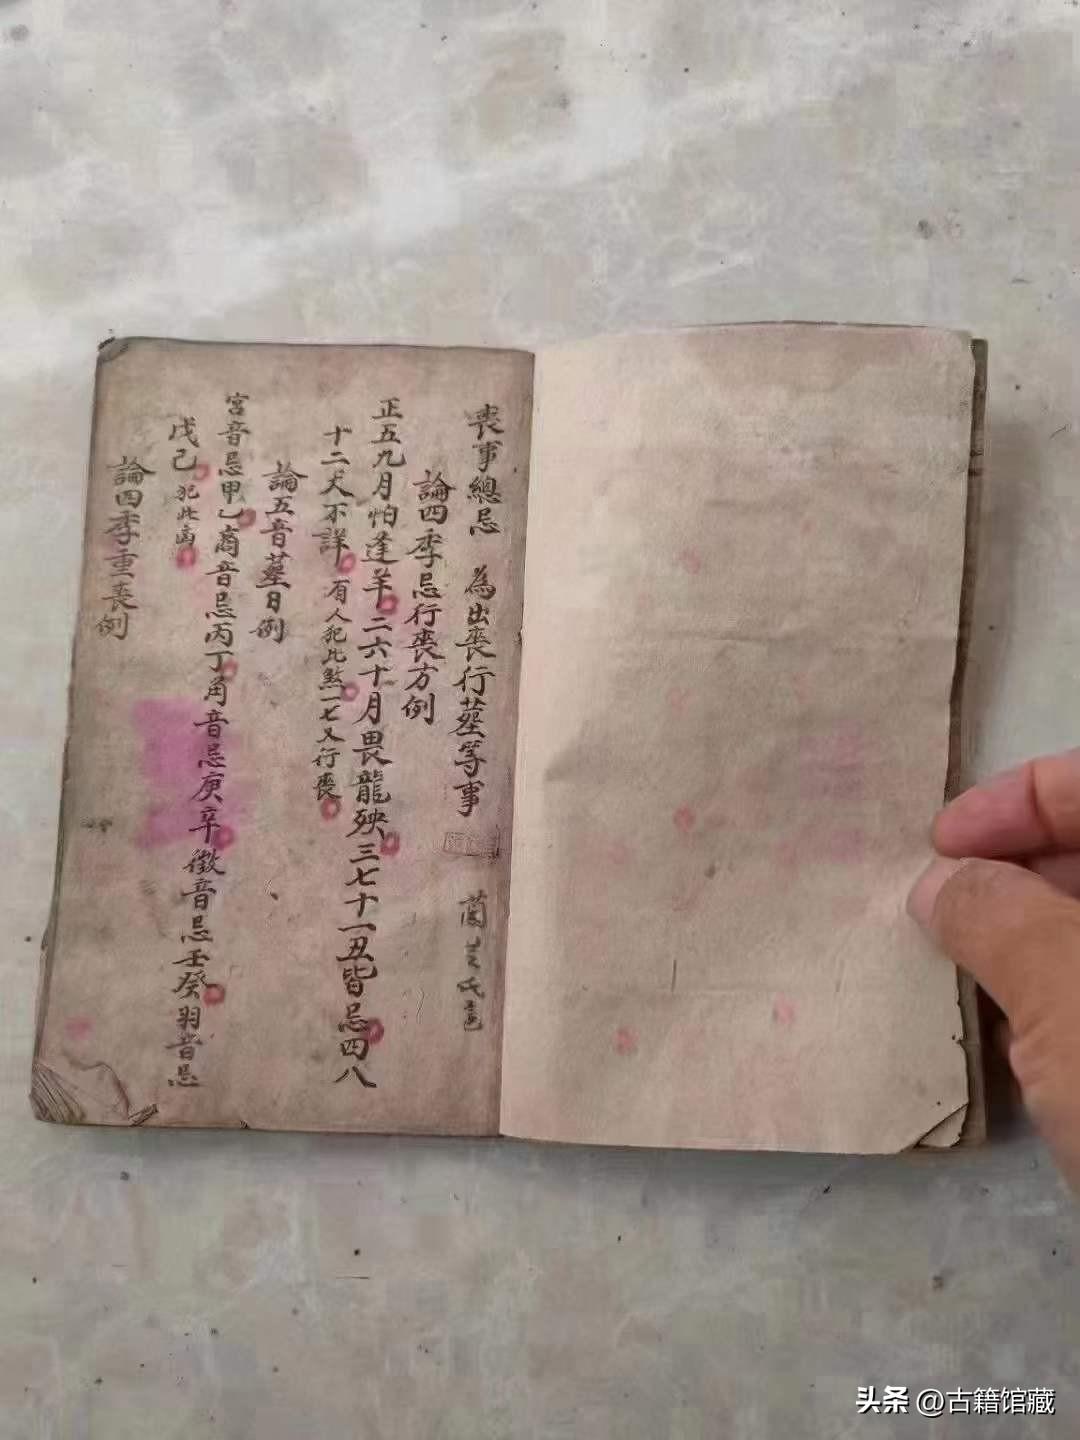 喪事總忌 為出喪行塟等事
論四季忌行喪方例
正五九月怕逢羊二六十月畏龍殃三七十一丑皆忌四八
十二犬不詳 有人犯此煞一七又行喪
論五音塟日例
宮音忌甲乙商音忌丙丁角音忌庚辛徵音忌壬癸羽音忌
戊己 犯此凶
論四季重喪例
头条 @古籍馆藏